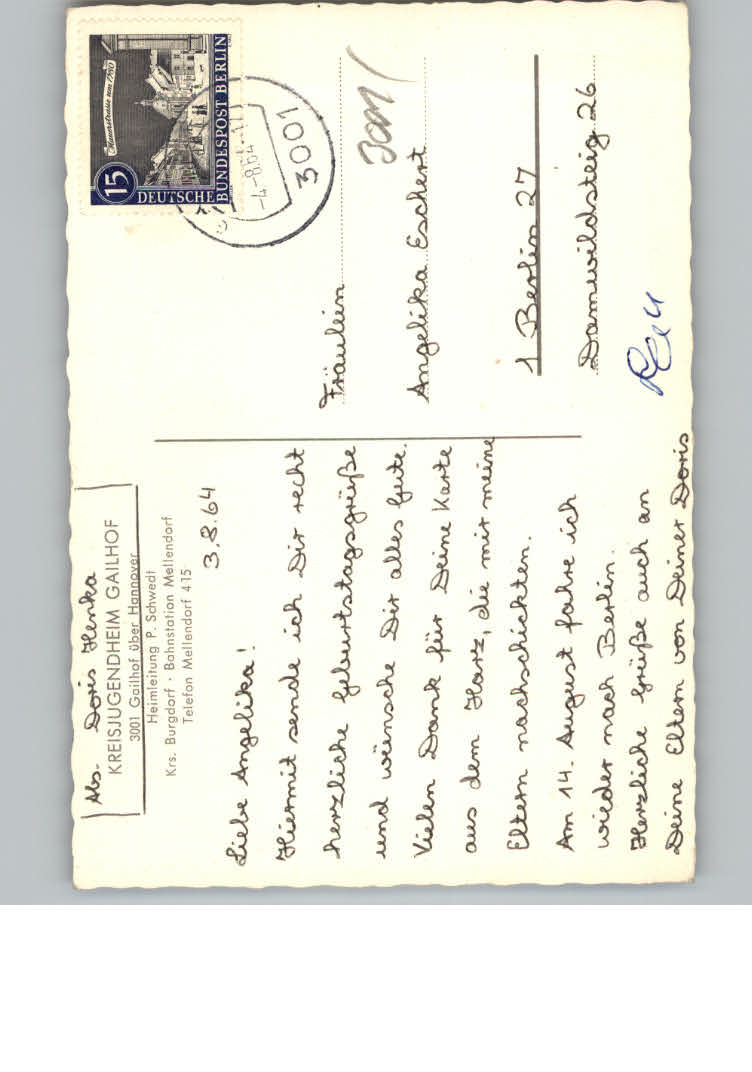 Abs. Doris Henka
KREISJUGENDHEIM GAILHOF
3001 Gailhof über Hannover
Heimleitung P. Schwedt
Krs. Burgdorf · Bahnstation Mellendorf
Telefon Mellendorf 415
3.8.64
Liebe Angelika!
Hiermit sende ich Dir recht
herzliche Geburtstagsgrüße
und wünsche Dir alles Gute.
Vielen Dank für Deine Karte
aus dem Harz, die mir meine
Eltern nachschickten.
Am 14. August fahre ich
wieder nach Berlin.
Herzliche Grüße auch an
Deine Eltern von Deiner Doris
15
DEUTSCHE
BUNDESPOST BERLIN
-4.-8.64
3001
Fräulein
Angelika Eschert
1 Berlin 27
Damwildsteig 26